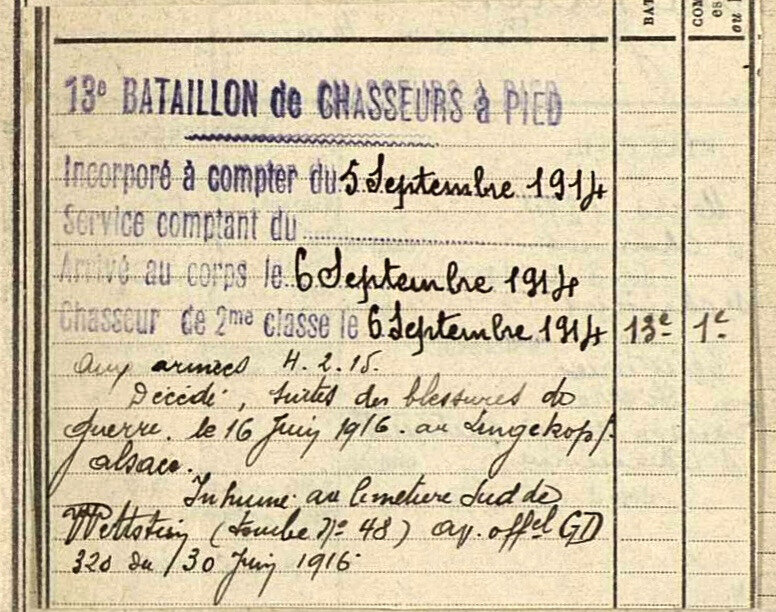 BAT
COM
es
ou
13e BATAILLON de CHASSEURS à PIED
Incorporé à compter du 5 Septembre 1914
Service comptant du
Arrivé au corps le 6 Septembre 1914
Chasseur de 2me classe le 6 Septembre 1914 13e 1e
aux armées 4.2.15.
Décédé, suites de blessures de
guerre. le 16 Juin 1916. au Lingekopf.
alsace.
Inhumé au Cimetière Sud de
Wettstein (tombe No 48) av. offel GD
320 du 30 Juin 1916